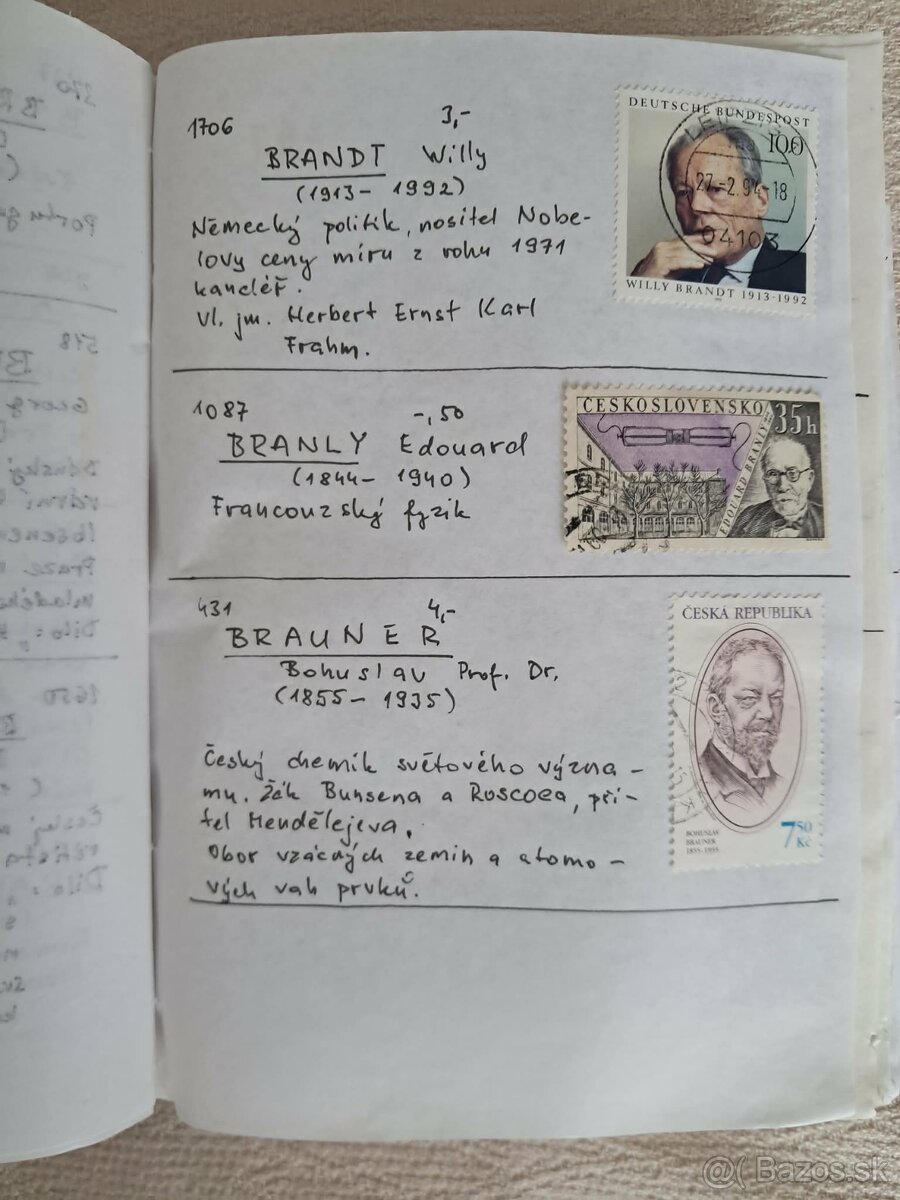 1706
3,-
BRANDT Willy
(1913- 1992)
Německý politik, nositel Nobe-
lovy ceny míru z roku 1971
kancléř.
vl. jm. Herbert Ernst Karl
Frahm.
DEUTSCHE BUNDESPOST
100
27.-2.94-18
04103
WILLY BRANDT 1913-1992
1087
-,50
BRANLY Edouard
(1844- 1940)
Francouzský fyzik
ČESKOSLOVENSKO
35h
EDOUARD BRANLY
431
4,-
BRAUNER
Bohuslav Prof. Dr.
(1855- 1935)
Český chemik světového význa-
mu. Žák Bunsena a Roscoea, pří-
tel Mendělejeva.
Obor vzácných zemin a atomo-
vých vah prvků.
ČESKÁ REPUBLIKA
BOHUSLAV
BRAUNER
1855-1935
750
Kč
@( Bazos.sk